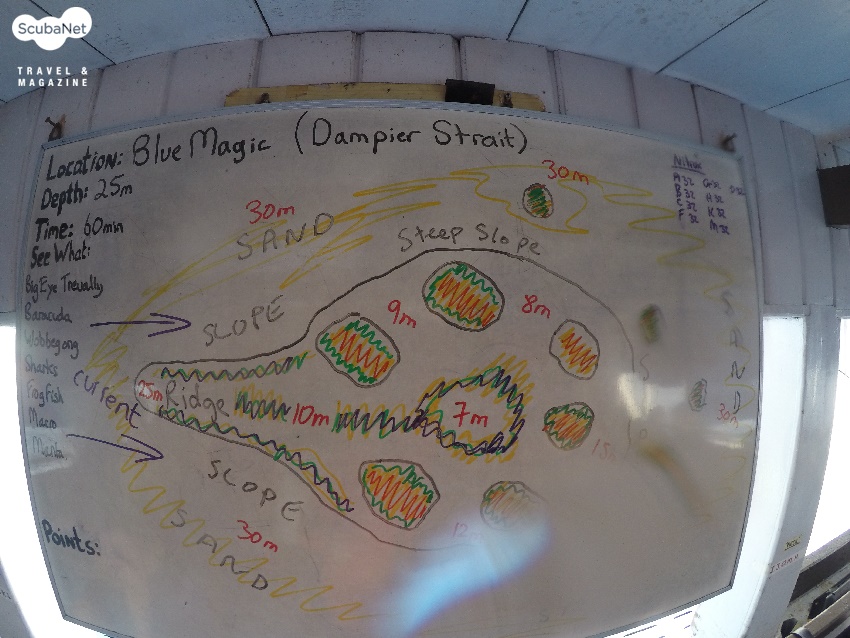 ScubaNet
TRAVEL &
MAGAZINE
Location: Blue Magic (Dampier Strait)
Depth: 25m
Time: 60min
See What:
Big Eye Trevally
Baracuda
Wobbegong
Sharks
Frog Fish
Macro
Manta
Points:
current
30m
SAND
30m
Steep Slope
SLOPE
9m
8m
25m
Ridge
10m
7m
SLOPE
30m
SAND
SAND
30m
Nitrox
A 32
B 32
C 32
F 32
H 32
K 32
M 32